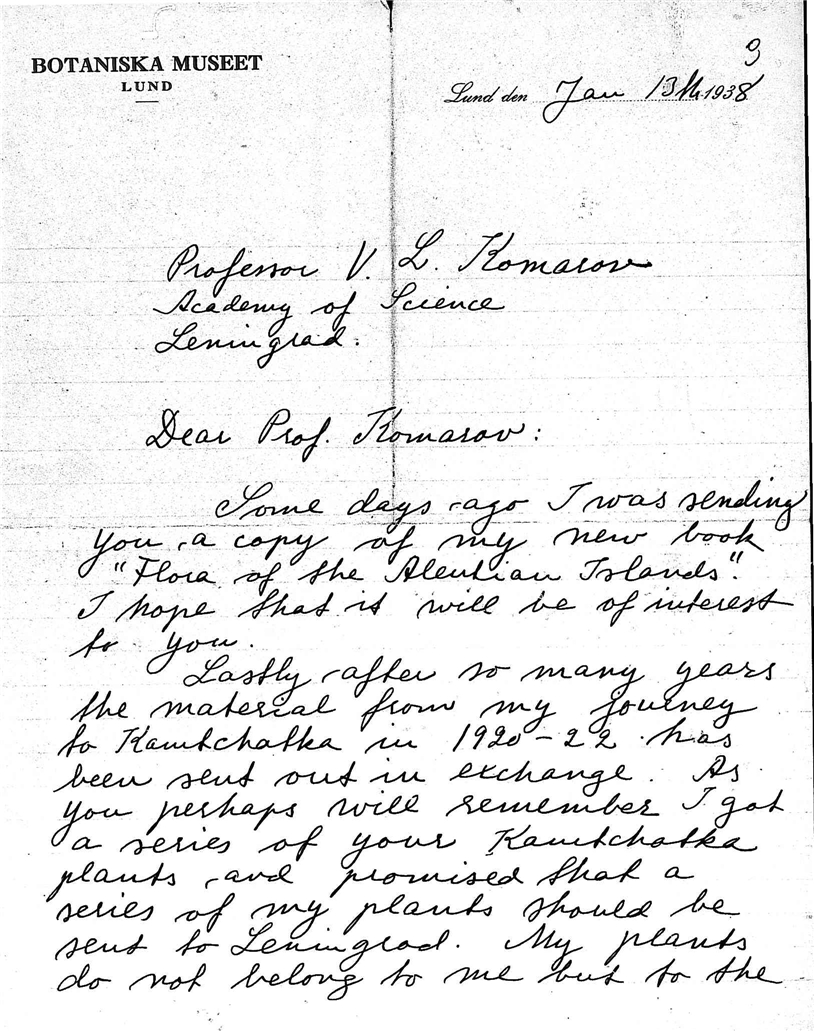 9
BOTANISKA MUSEET
LUND
Lund den Jan 13th 1938
Professor V. L. Komarov
Academy of Science
Leningrad.
Dear Prof. Komarov:
Some days ago I was sending
you a copy of my new book
"Flora of the Aleutian Islands".
I hope that it will be of interest
to you.
Lastly after so many years
the material from my journey
to Kamtchatka in 1920-22 has
been sent out in exchange. As
you perhaps will remember I got
a series of your Kamtchatka
plants and promised that a
series of my plants should be
sent to Leningrad. My plants
do not belong to me but to the